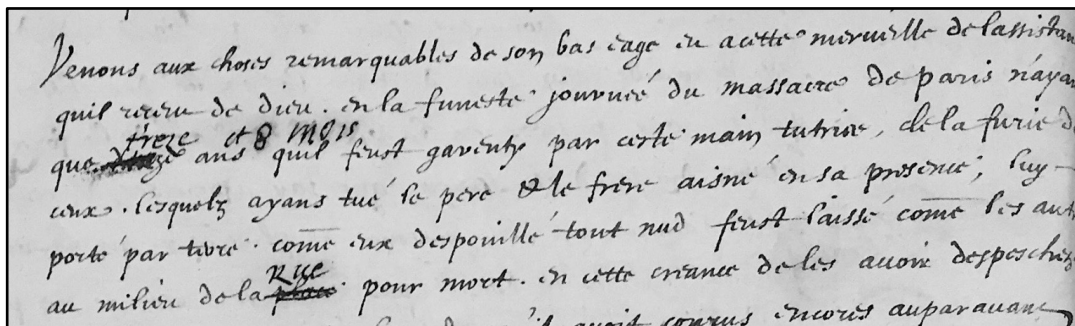 Venons aux choses remarquables de son bas eage en acette merveille de lassistan
quil receu de dieu. en la funeste journée du massacre de paris n'ayan
frese et 8 mois
que ans quil feust garenty par ceste main tutrice, de la furie d
ceux. lesquelz ayans tué le pere & le frere aisné en sa presence; luy
porté par terre. come eux despouillé tout nud feust laissé come les aut
Rue
au milieu de la place pour mort. en cette creance de les avoir despeschez
avoit courus encores auparavant